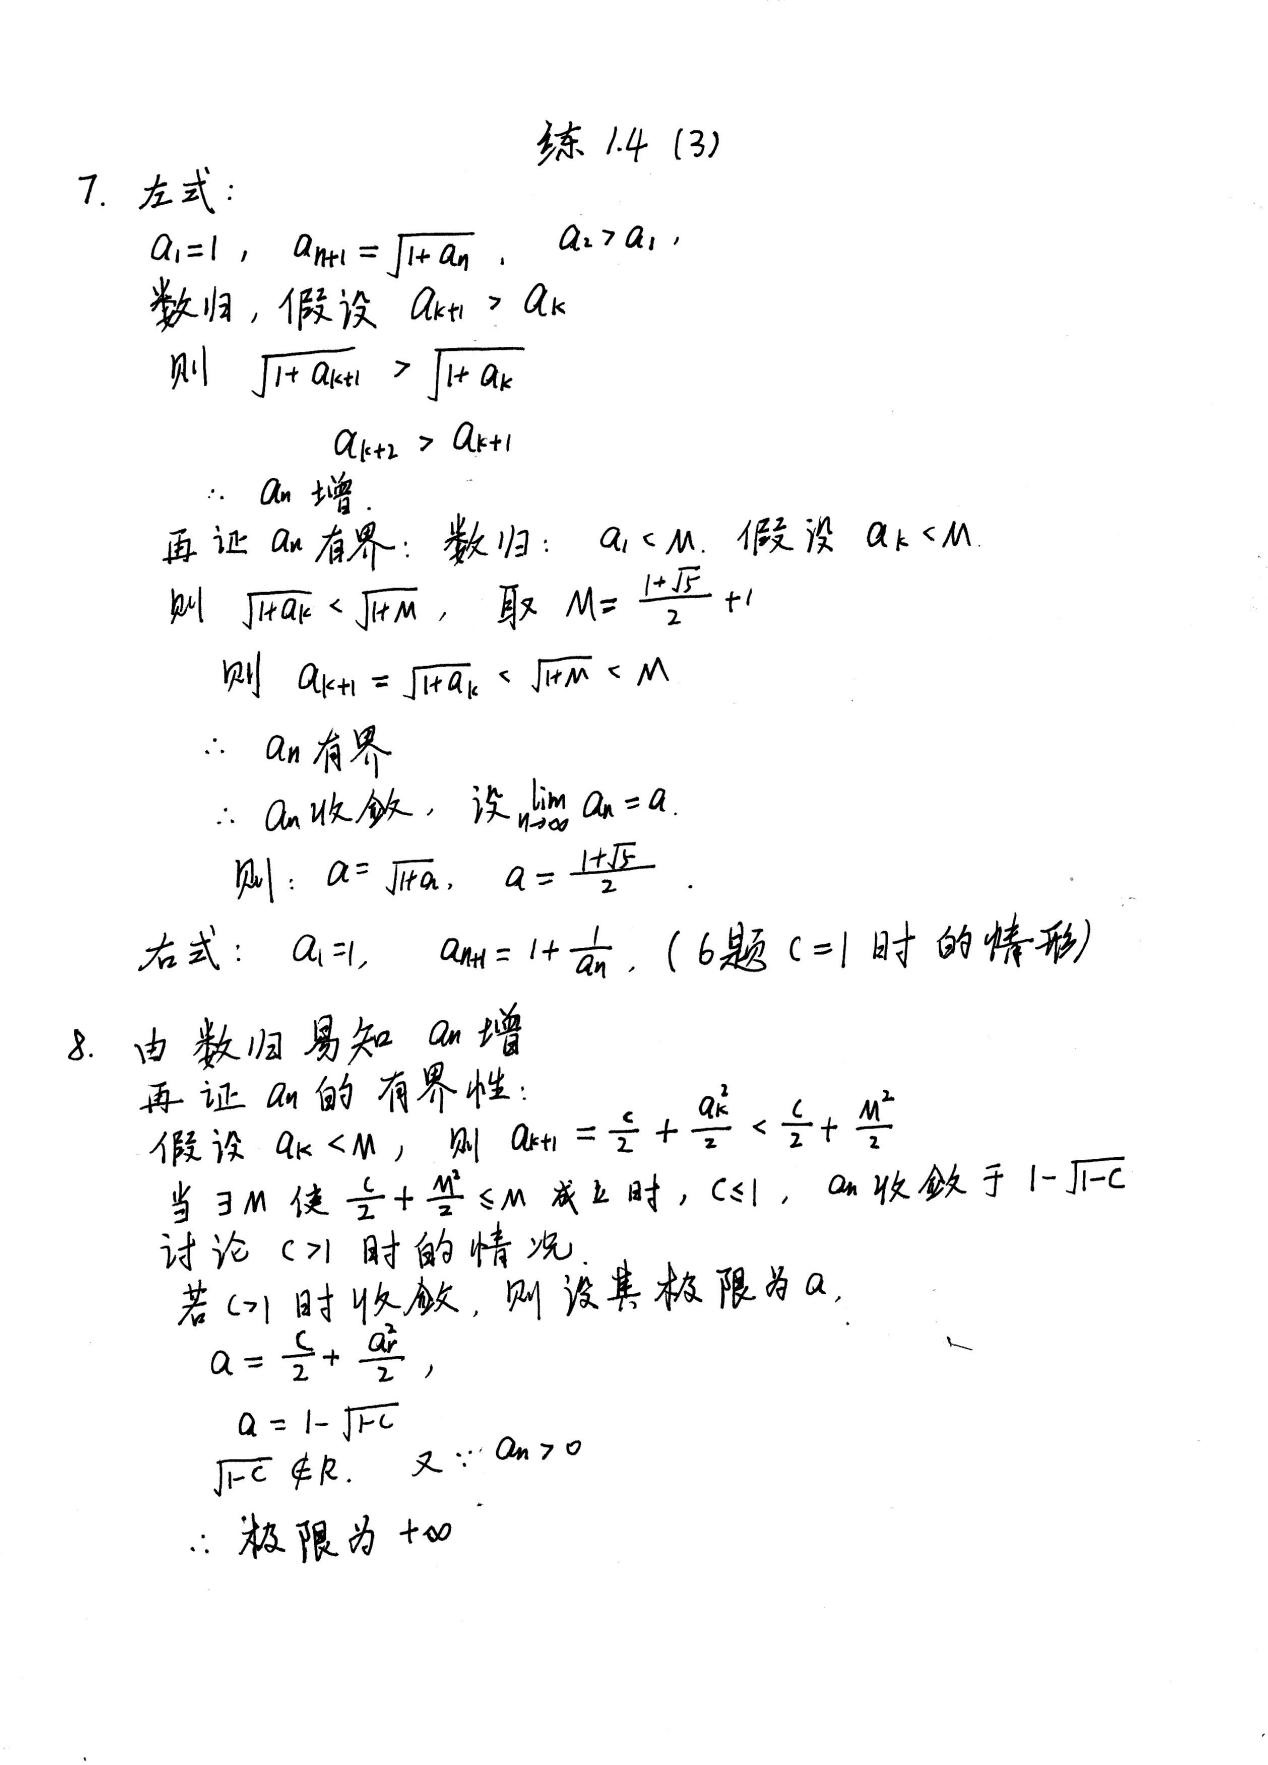 练 1.4 (3)
7. 左式:
a₁=1, aₙ₊₁=√(1+aₙ). a₂>a₁,
数归,假设 aₖ₊₁ > aₖ
则 √(1+aₖ₊₁) > √(1+aₖ)
aₖ₊₂ > aₖ₊₁
∴ aₙ 增.
再证 aₙ 有界: 数归: a₁<M. 假设 aₖ<M.
则 √(1+aₖ) < √(1+M), 取 M= (1+√5)/2 +1
则 aₖ₊₁ = √(1+aₖ) < √(1+M) < M
∴ aₙ 有界
∴ aₙ 收敛, 设 lim n→∞ aₙ = a.
则: a=√(1+a), a= (1+√5)/2 .
右式: a₁=1, aₙ₊₁= 1+ 1/aₙ. (6题 c=1 时的情形)
8. 由数归易知 aₙ 增
再证 aₙ 的有界性:
假设 aₖ<M, 则 aₖ₊₁ = c/2 + aₖ²/2 < c/2 + M²/2
当∃M 使 c/2 + M²/2 ≤M 成立时, c≤1, aₙ 收敛于 1-√(1-c)
讨论 c>1 时的情况.
若 c>1 时收敛, 则设其极限为 a,
a = c/2 + aᵣ²/2,
a = 1-√(1-c)
√(1-c) ∉R. 又∵ aₙ>0
∴ 极限为 +∞